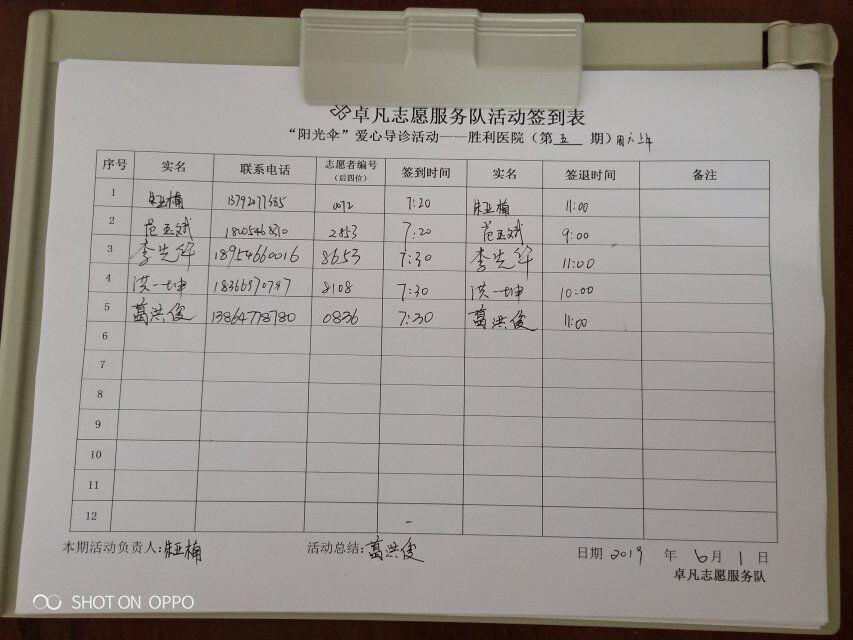 卓凡志愿服务队活动签到表
“阳光伞”爱心导诊活动——胜利医院（第 五 期）周六上午
序号 实名 联系电话 志愿者编号（后四位） 签到时间 实名 签退时间 备注
1 朱亚楠 0072 7:20 朱亚楠 11:00
2 范玉斌 2853 7:20 范玉斌 9:00
3 李先华 18954660016 8653 7:30 李先华 11:00
4 洪一坤 8108 7:30 洪一坤 10:00
5 葛洪俊 13864778780 0836 7:30 葛洪俊 11:00
6
7
8
9
10
11
12
本期活动负责人:朱亚楠 活动总结:葛洪俊 日期 2019 年 6 月 1 日
卓凡志愿服务队
SHOT ON OPPO